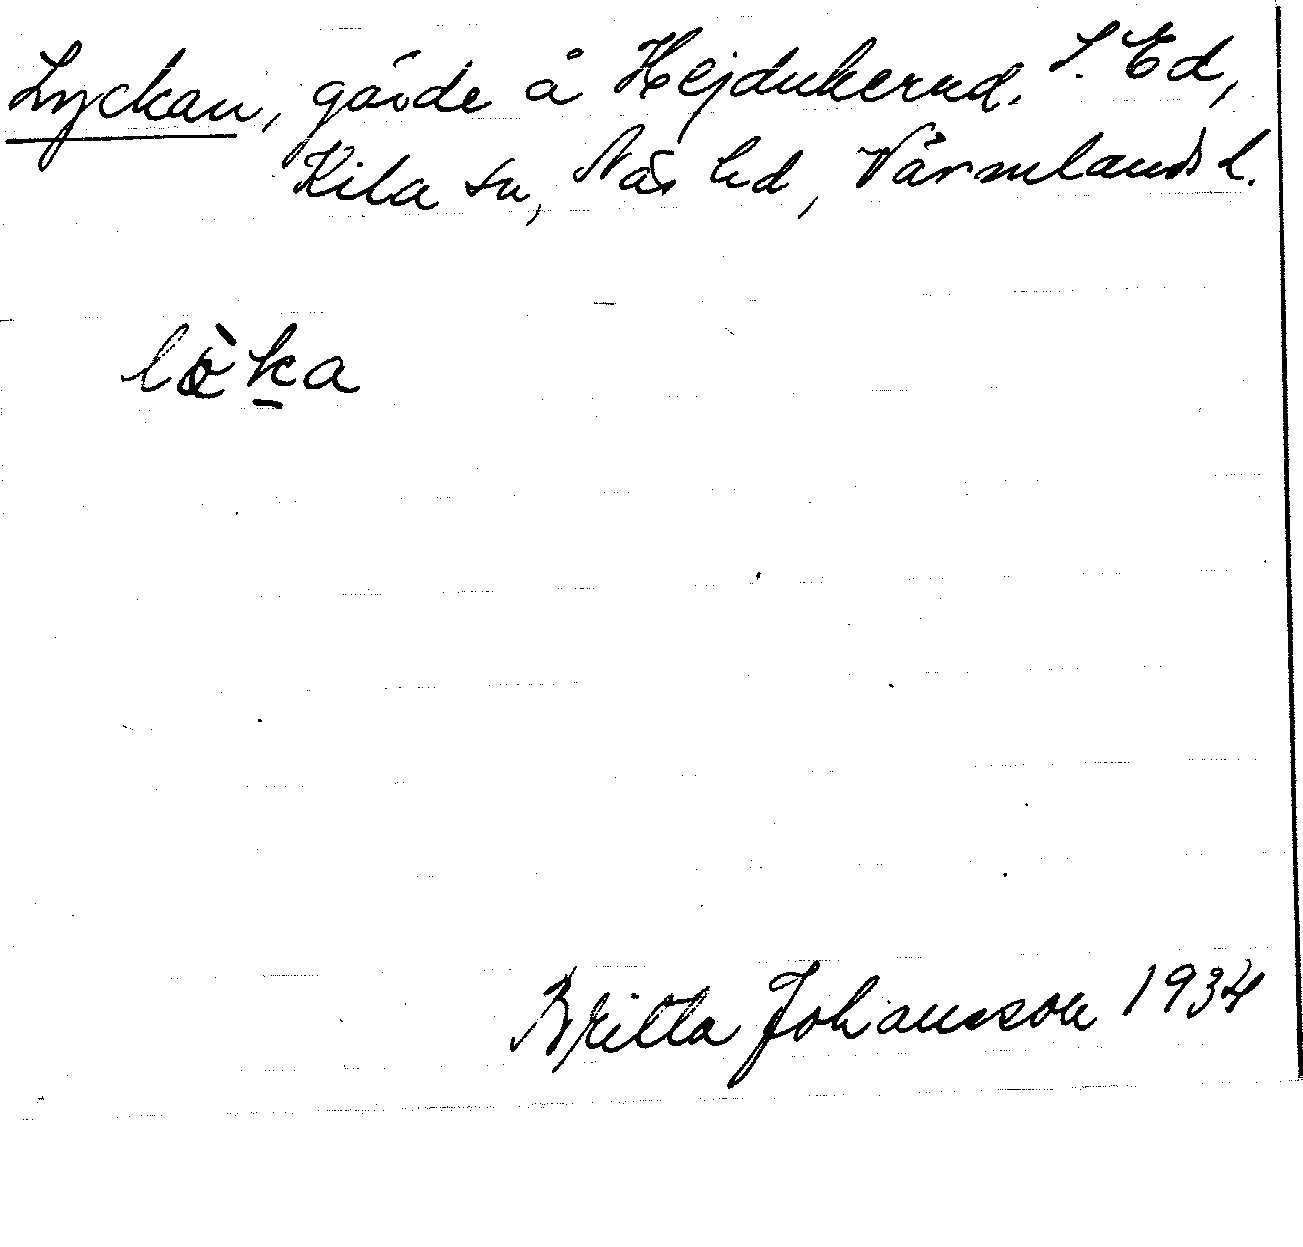 Lyckan, gärde å Hejdukerud, S. Ed,
Kila sn, Näs hd, Värmlands l.
lö̀k̠a
Britta Johansson 1934